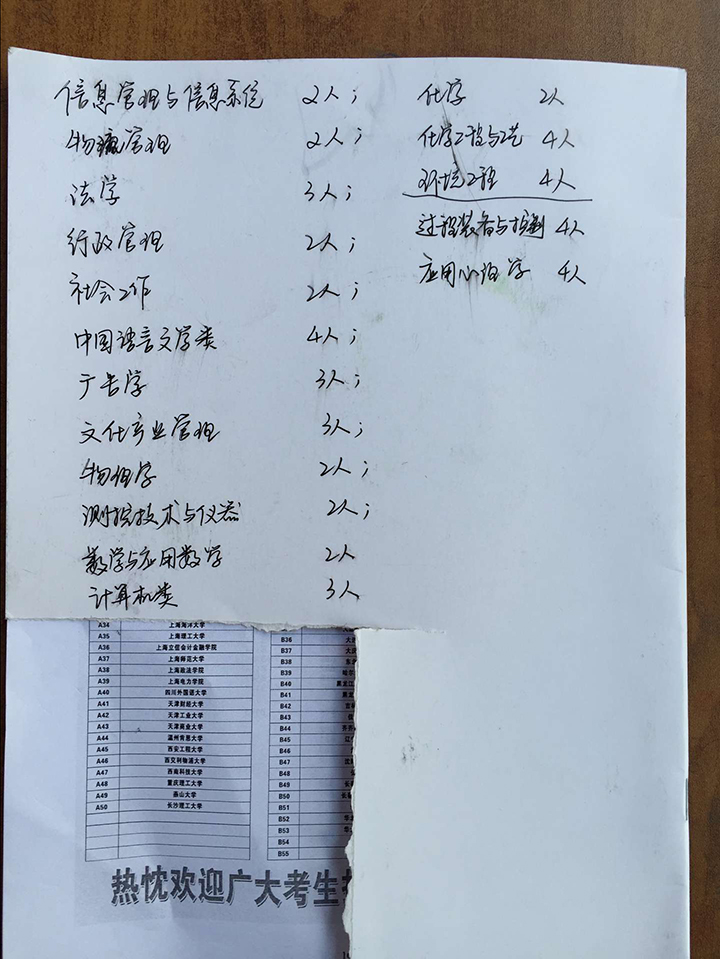 信息管理与信息系统 2人;
物流管理 2人;
法学 3人;
行政管理 2人;
社会工作 2人;
中国语言文学类 4人;
广告学 3人;
文化产业管理 3人;
物理学 2人;
测控技术与仪器 2人;
数学与应用数学 2人
计算机类 3人
化学 2人
化学工程与工艺 4人
环境工程 4人
过程装备与控制 4人
应用心理学 4人
A34 上海海洋大学
A35 上海理工大学
A36 上海立信会计金融学院
A37 上海师范大学
A38 上海政法学院
A39 上海电力学院
A40 四川外国语大学
A41 天津财经大学
A42 天津工业大学
A43 天津商业大学
A44 温州肯恩大学
A45 西安工程大学
A46 西交利物浦大学
A47 西南科技大学
A48 重庆理工大学
A49 燕山大学
A50 长沙理工大学
B36
B37
B38
B39
B40
B41
B42
B43
B44
B45
B46
B47
B48
B49
B50
B51
B52
B53
B54
B55
热忱欢迎广大考生